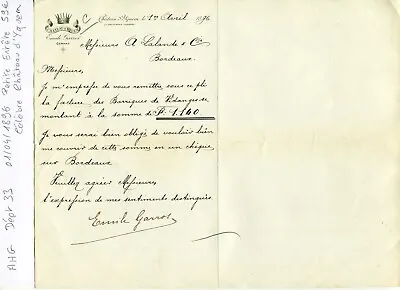 Château d'Yquem, le 1er Avril 1896
Emile Garros
GÉRANT
Messieurs A Lalande & Cie
Bordeaux.
Messieurs,
Je m'empresse de vous remettre sous ce pli
la facture des Barriques de Vidanges de
montant à la somme de F. 1.160
Je vous serai bien obligé de vouloir bien
me couvrir de cette somme en un chèque
sur Bordeaux
Veuillez agréer Messieurs,
l'expression de mes sentiments distingués
Emile Garros
AHG Dépt 33 01/04/1896 Petite Entête S9e
Célèbre Château d'Yquem